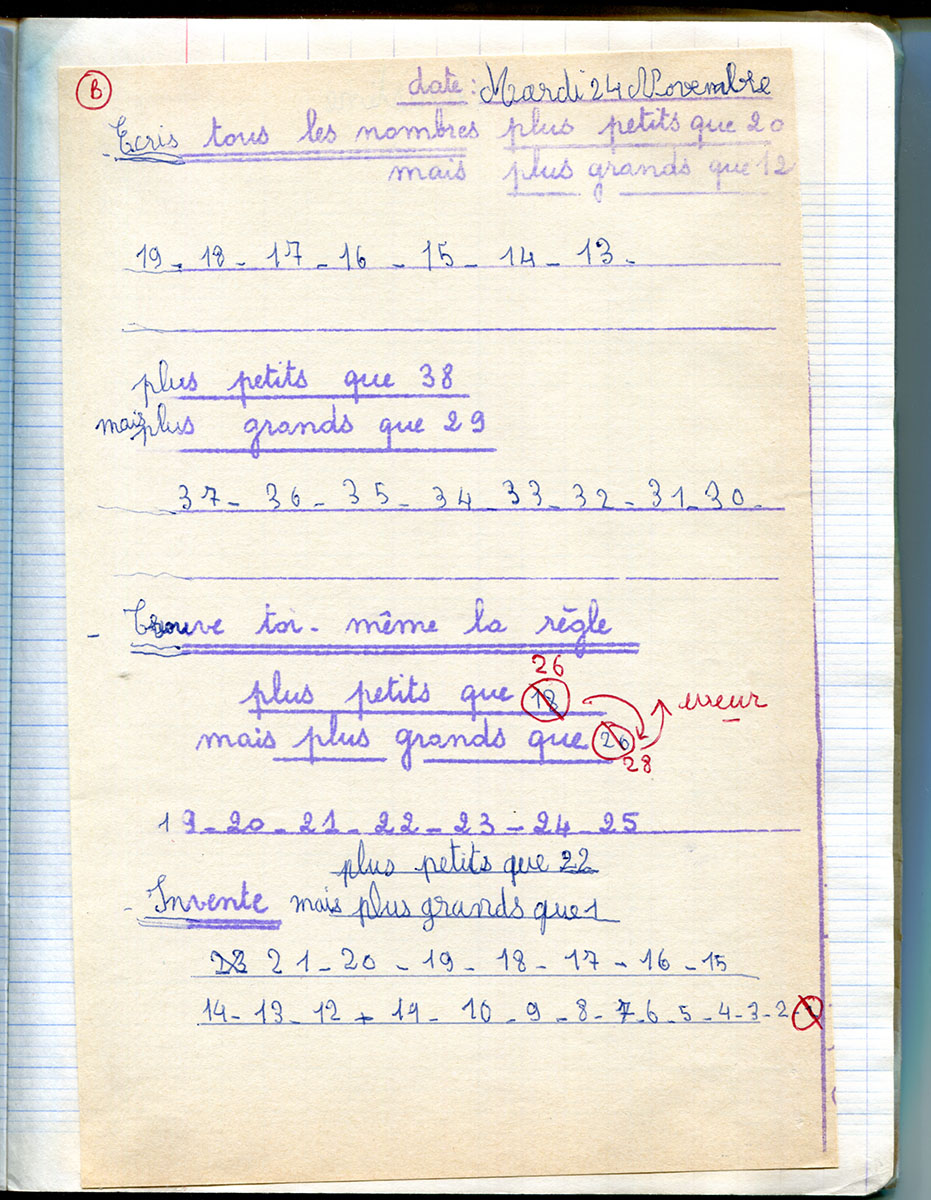 B
date: Mardi 24 Novembre
- Ecris tous les nombres plus petits que 20
mais plus grands que 12
19 - 18 - 17 - 16 - 15 - 14 - 13 -
plus petits que 38
mais plus grands que 29
37 - 36 - 35 - 34 - 33 - 32 - 31 - 30 -
- Trouve toi-même la règle
26
plus petits que 18 erreur
mais plus grands que 26
28
19 - 20 - 21 - 22 - 23 - 24 - 25
plus petits que 22
- Invente mais plus grands que 1
21 - 20 - 19 - 18 - 17 - 16 - 15
14 - 13 - 12 - 11 - 10 - 9 - 8 - 7 - 6 - 5 - 4 - 3 - 2 -